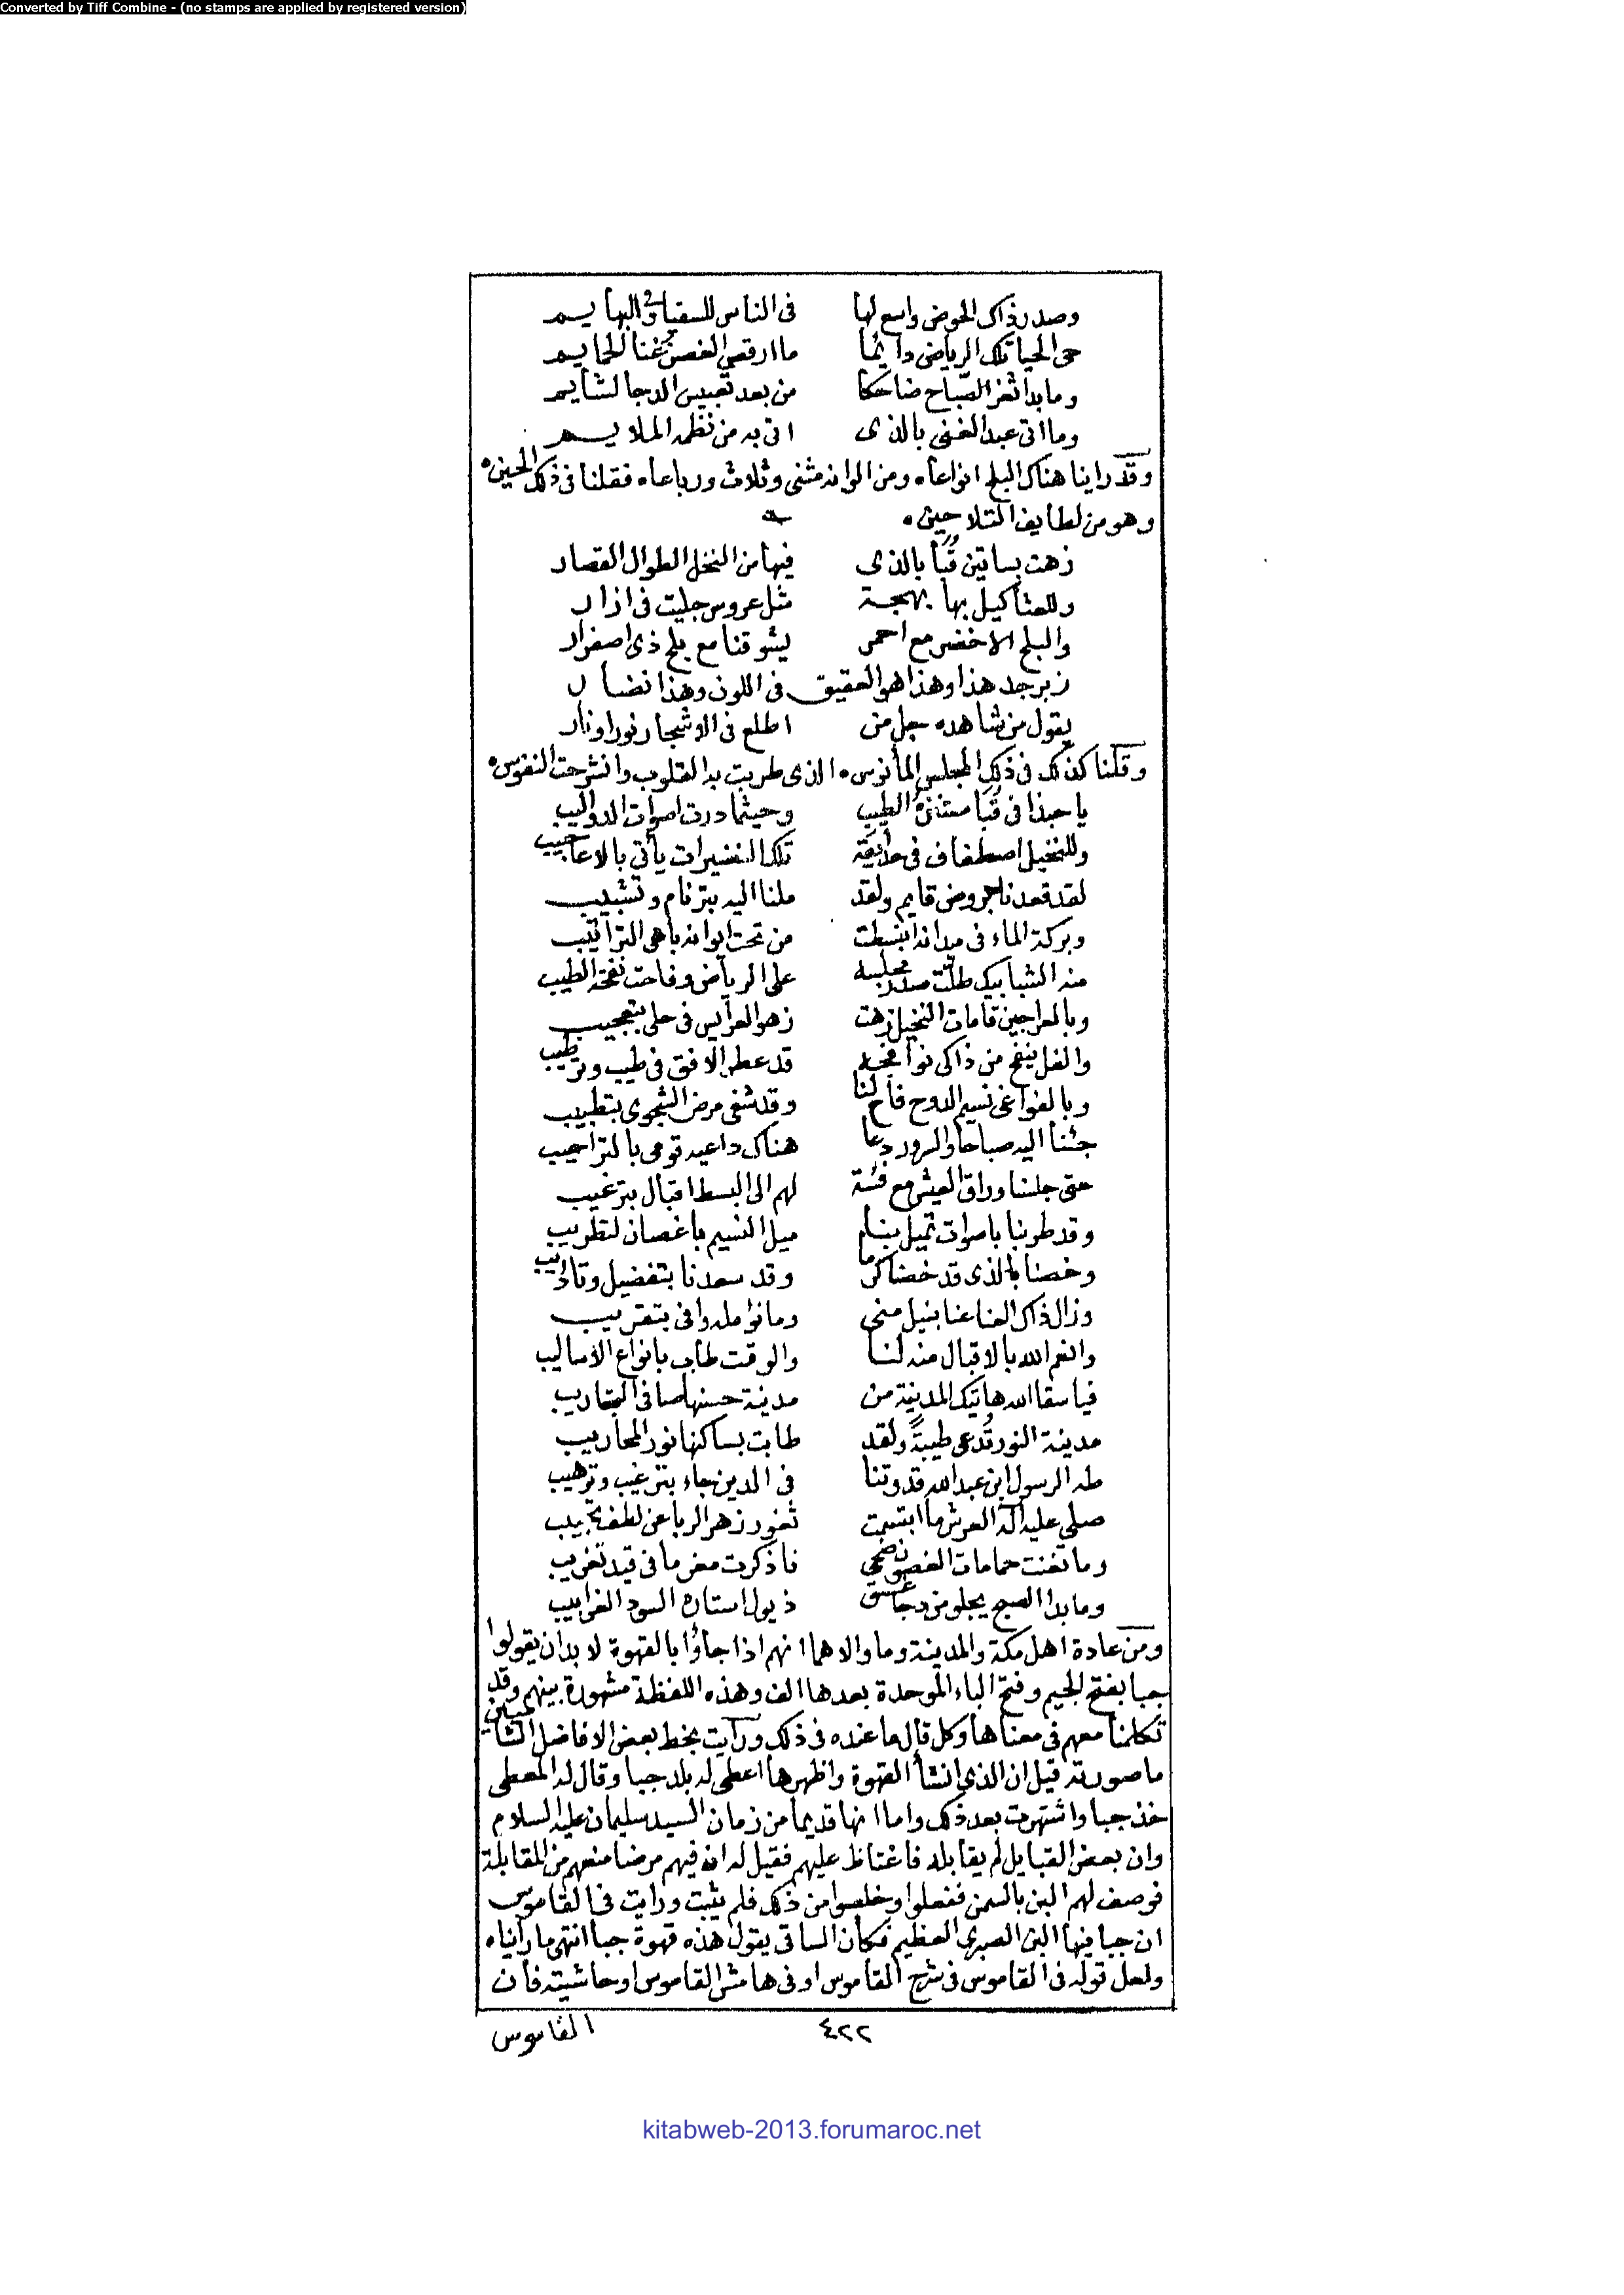 Converted by Tiff Combine - (no stamps are applied by registered version)
وصدر ذاك الحوض واسع لها في الناس للسقيا والبهايم
حى الحيا تلك الرياض دايما ما ارقص الغصن غنا الحمايم
وما بدا ثغر الصباح ضاحكا من بعد تعبيس الدجا لشايم
وما اتى عبد الغنى بالذى اتى به من نظمه الملايم
وقد راينا هناك البلح انواعاه ومن الوانه مثنى وثلاث ورباعاه فقلنا فى ذلك الحين ه
وهو من لطايف التلاحين ه
زهت بساتين قبا بالذى فيها من النخل الطوال القصار
وللعثاكيل بها بهجة مثل عروس جليت فى ازار
والبلح الاخضر مع احمر يشوقنا مع بلح ذى اصفرار
زبرجد هذا وهذا هو العقيق فى اللون وهذا نضار
يقول من شاهده جل من اطلع فى الاشجار نورا ونار
وقلنا كذلك فى ذلك المجلس المأنوس ه الذى طربت به القلوب وانشرحت النفوس ه
يا حبذا فى قبا مستنزه الطيب وحيثما درت اصوات الدواليب
وللنخيل اصطفاف فى حدايقه تلك النضيرات يأتى بالاعاجيب
لقد قعدنا بحروض قايم ولقد ملنا اليه بترنام وتشبيب
وبركة الماء فى ميدانه انبسطت من تحت ايوانه باهى التراتيب
منه الشبابيك طلت صدر مجلسه على الرياض وفاحت نفحة الطيب
وبالعراجين قامات النخيل زهت زهو العرايس فى حلى بتعجيب
والفل ينفح من ذاكى نوافحه قد عطر الافق فى طيب وترطيب
وبالفواغى نسيم الدوح فاح لنا وقد شفى مرض الشجوى بتطبيب
جئنا اليه صباحا والسرور دعا هناك داعيه قومى بالتراحيب
حتى جلسنا وراق العيش مع فئة لهم الى البسط اقبال بترغيب
وقد طربنا باصوات تميل بنا ميل النسيم باغصان لتطريب
وخصنا بالذى قد خصنا كرما وقد سعدنا بتفضيل وتاذيب
وزال ذاك العنا عنا بنيل منى وما نؤمله وافى بتقريب
وانعم الله بالاقبال منه لنا والوقت طاب بانواع الاساليب
فيا سقا الله هاتيك المدينة من مدينة حسنها صافى التجاريب
مدينة النور تدعى طيبة ولقد طابت بساكنها نور المحاريب
طه الرسول ابن عبد الله قدوتنا فى الدين جاء بترغيب وترهيب
صلى عليه اله العرش ما ابتسمت ثغور زهر الربا عن لطف تحبيب
وما تغنت حمامات الغصون ضحى فاذكرت مغرما فى قيد تغريب
وما بدا الصبح يجلو من دجا غسق ذيول استاره السود الغرابيب
ومن عادة اهل مكة والمدينة وما والاهما انهم اذا جاؤا بالقهوة لا بد ان يقولوا
جبا بفتح الجيم وفتح الباء الموحدة بعدها الف وهذه اللفظة مشهورة بينهم وقد
تكلمنا معهم فى معناها وكل قال ما عنده فى ذلك ورايت بخط بعض الافاضل الشاميين
ما صورته قيل ان الذى انشأ القهوة واظهرها اعطى له بلد جبا وقال له المعطى
خذ جبا واشتهرت بعد ذلك واما انها قديما من زمان السيد سليمان عليه السلام
وان بعض القبايل لم يقابله فاغتاظ عليهم فقيل له ان فيهم مرضا منعهم من المقابلة
فوصف لهم البن بالسمن ففعلوا وخلصوا من ذلك فلم يثبت ورايت فى القاموس
ان جبا فيها البن الصبرى العظيم فكأن الساقى يقول هذه قهوة جبا انتهى ما رأيناه
ولعل قوله فى القاموس فى شرح القاموس او فى هامش القاموس او حاشيته فان
القاموس
٤٢٢
kitabweb-2013.forumaroc.net